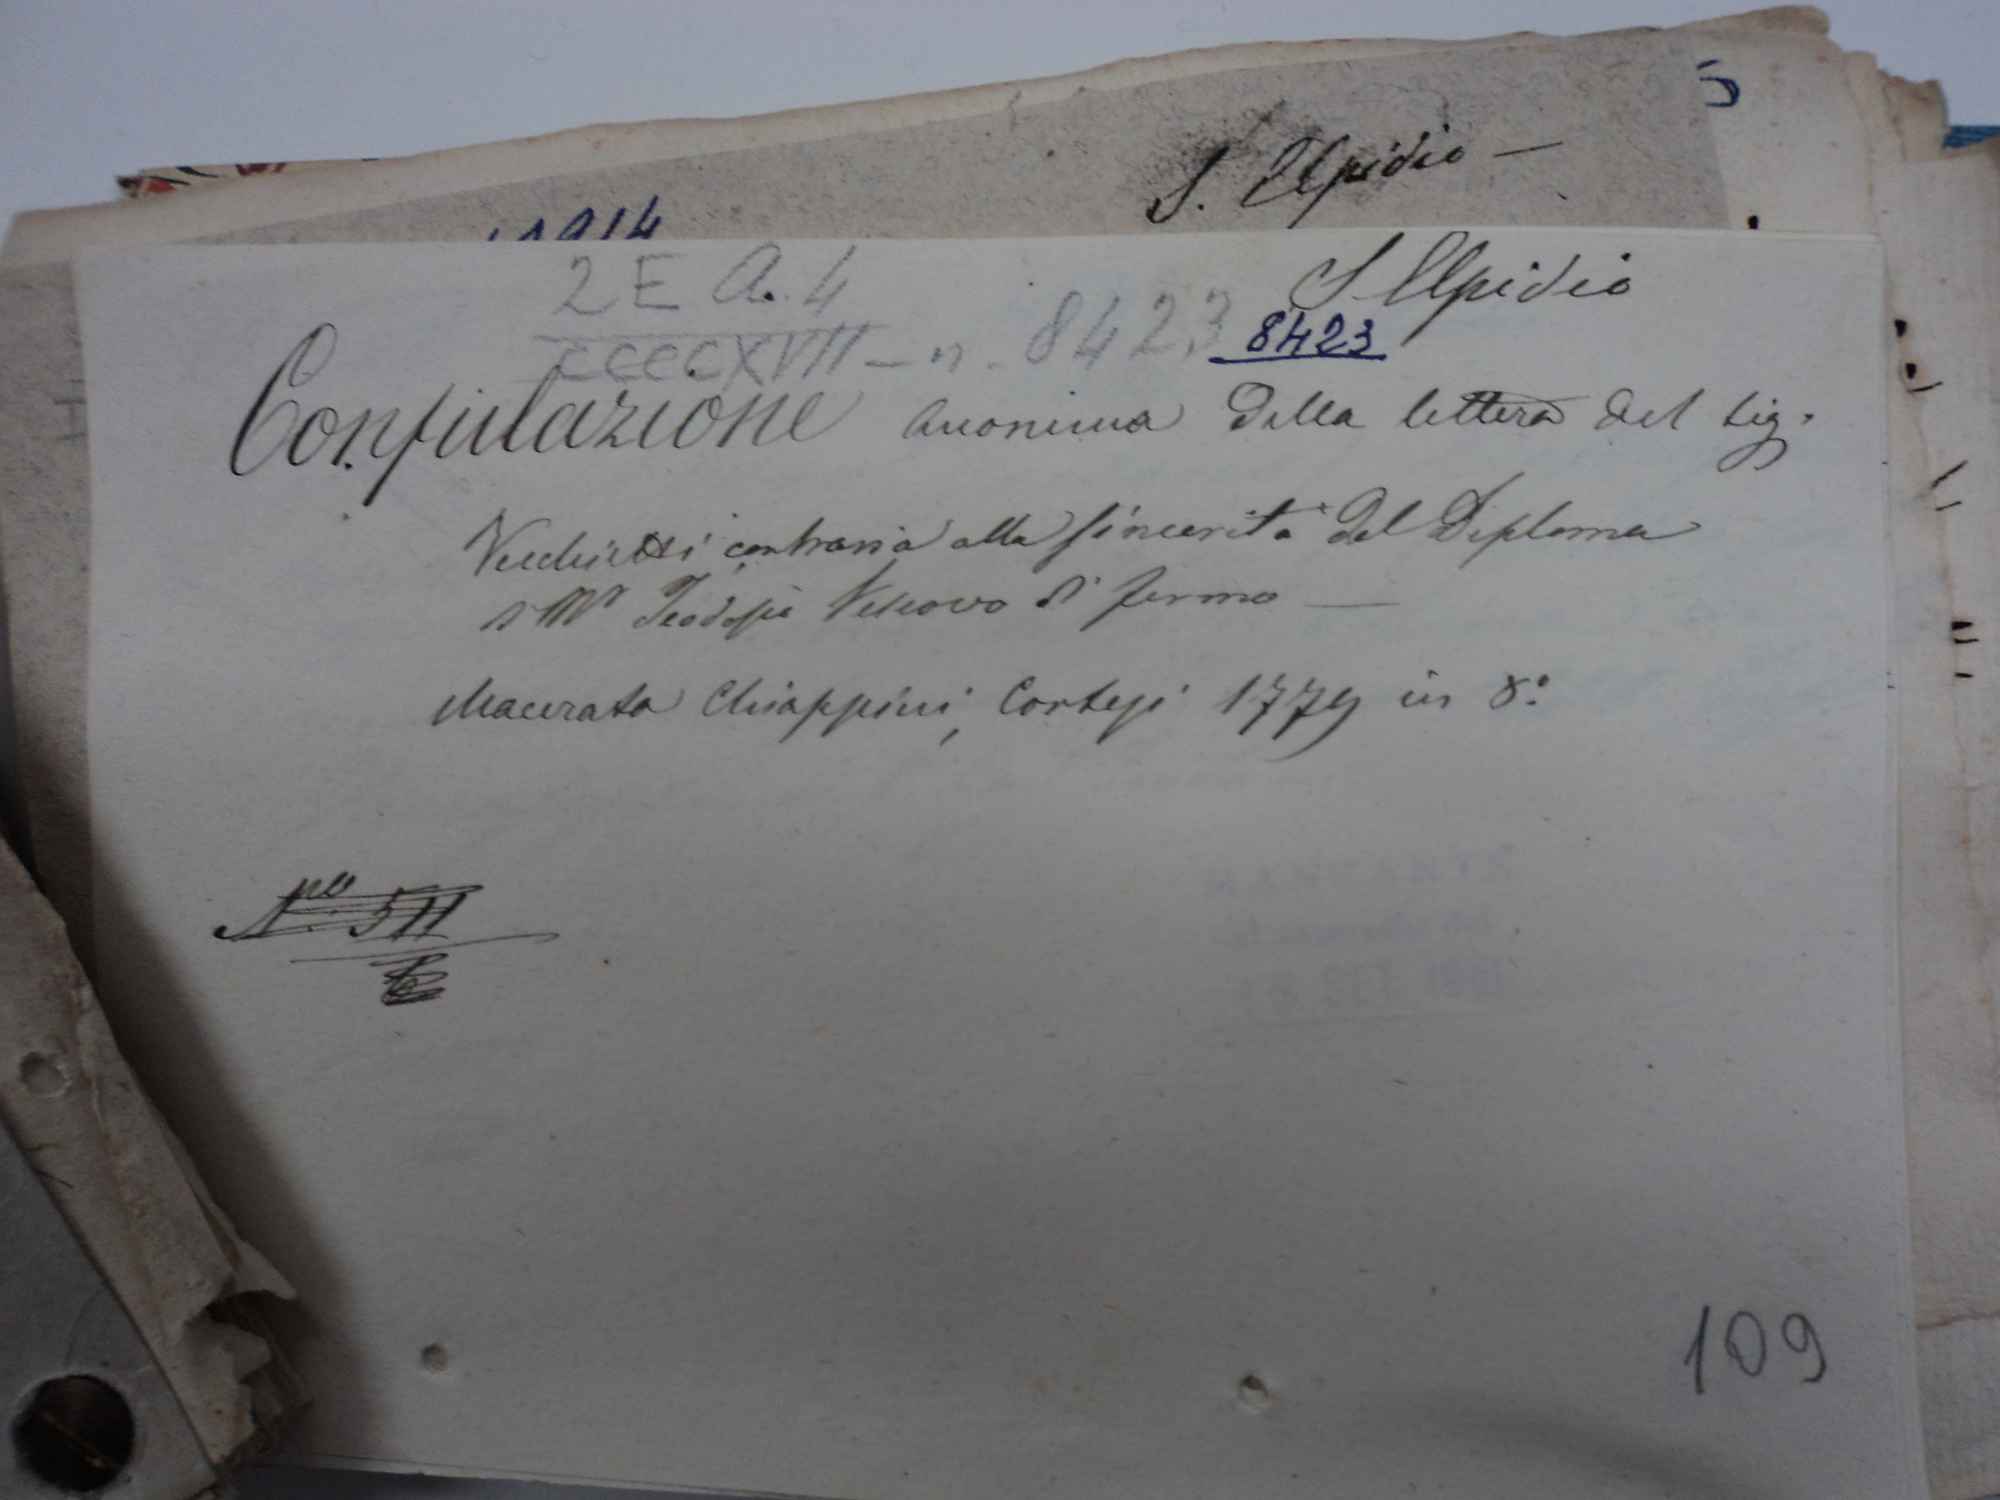 5
S. Elpidio —
1914
2 E A. 4
S. Elpidio
CCCCXVII — n. 8423
8423
Confutazione anonima della lettera del Sig.
Vecchietti contraria alla sincerità del Diploma
di Mr Teodosio Vescovo di Fermo —
Macerata Chiappini, Cortesi 1779 in 8º
No. 511
109